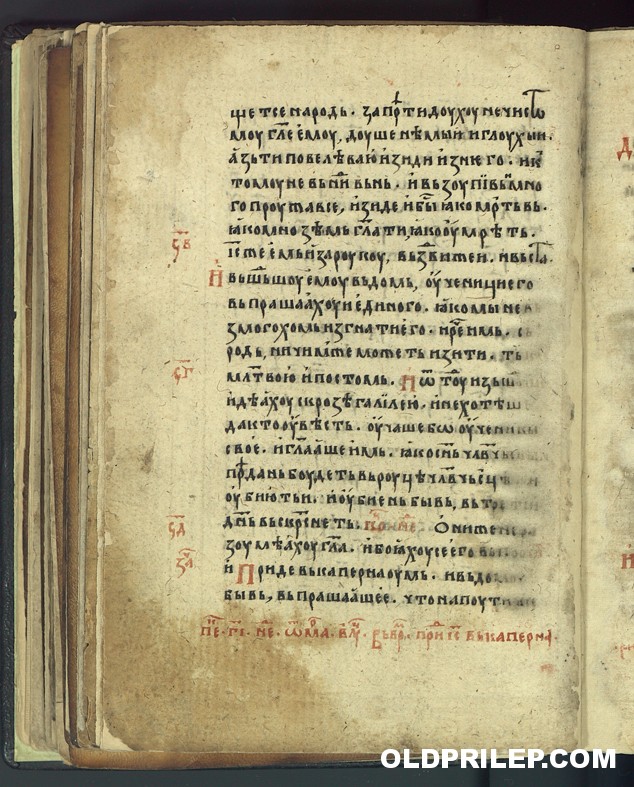 щетсе народь. запрѣти доухоу нечисто
моу гл҃е ѥмоу, доуше нѣмыи и глоухыи.
азь ти повелѣваю изиди из нѥго. и к
томоу не вьниди вь нь. и вьзоупивь мно
го проужавсе, изиде и бы҃ ꙗко мрьтвь.
ꙗко мноѕѣмь гл҃ати, ꙗко оумрѣть.
і҃с же ѥмь и за роукоу, вьздвиже и. и вьста.
И вьшьшоу ѥмоу вь домь, оученици его
вьпрашаахоу и единого. ꙗко мы не
змогохомь изгнати его. и рече имь. с
родь, ничимже можеть изити. ть
мл҃твою и постомь. И ѿ тоу изьш
идѣахоу скрозѣ галілею. и не хотѣш
да кто оувѣсть. оучаше бо оученикы
свое. и гл҃ааше имь. ꙗко сн҃ь чл҃вчь
прѣдань боудеть вь роуцѣ чл҃вчьсцѣ
оубиють и. и оубиень бывь, вь тр
дн҃ь вьскрснеть. Они же не ра
зоумѣахоу гл҃а. и боꙗхоусе его
и Приде вь капернаоумь. и вь дому
бывь, вьпрашааше е. что на поути
при і҃с вь каперна
ѕ҃в
ѕ҃г
ѕ҃д
OLDPRILEP.COM